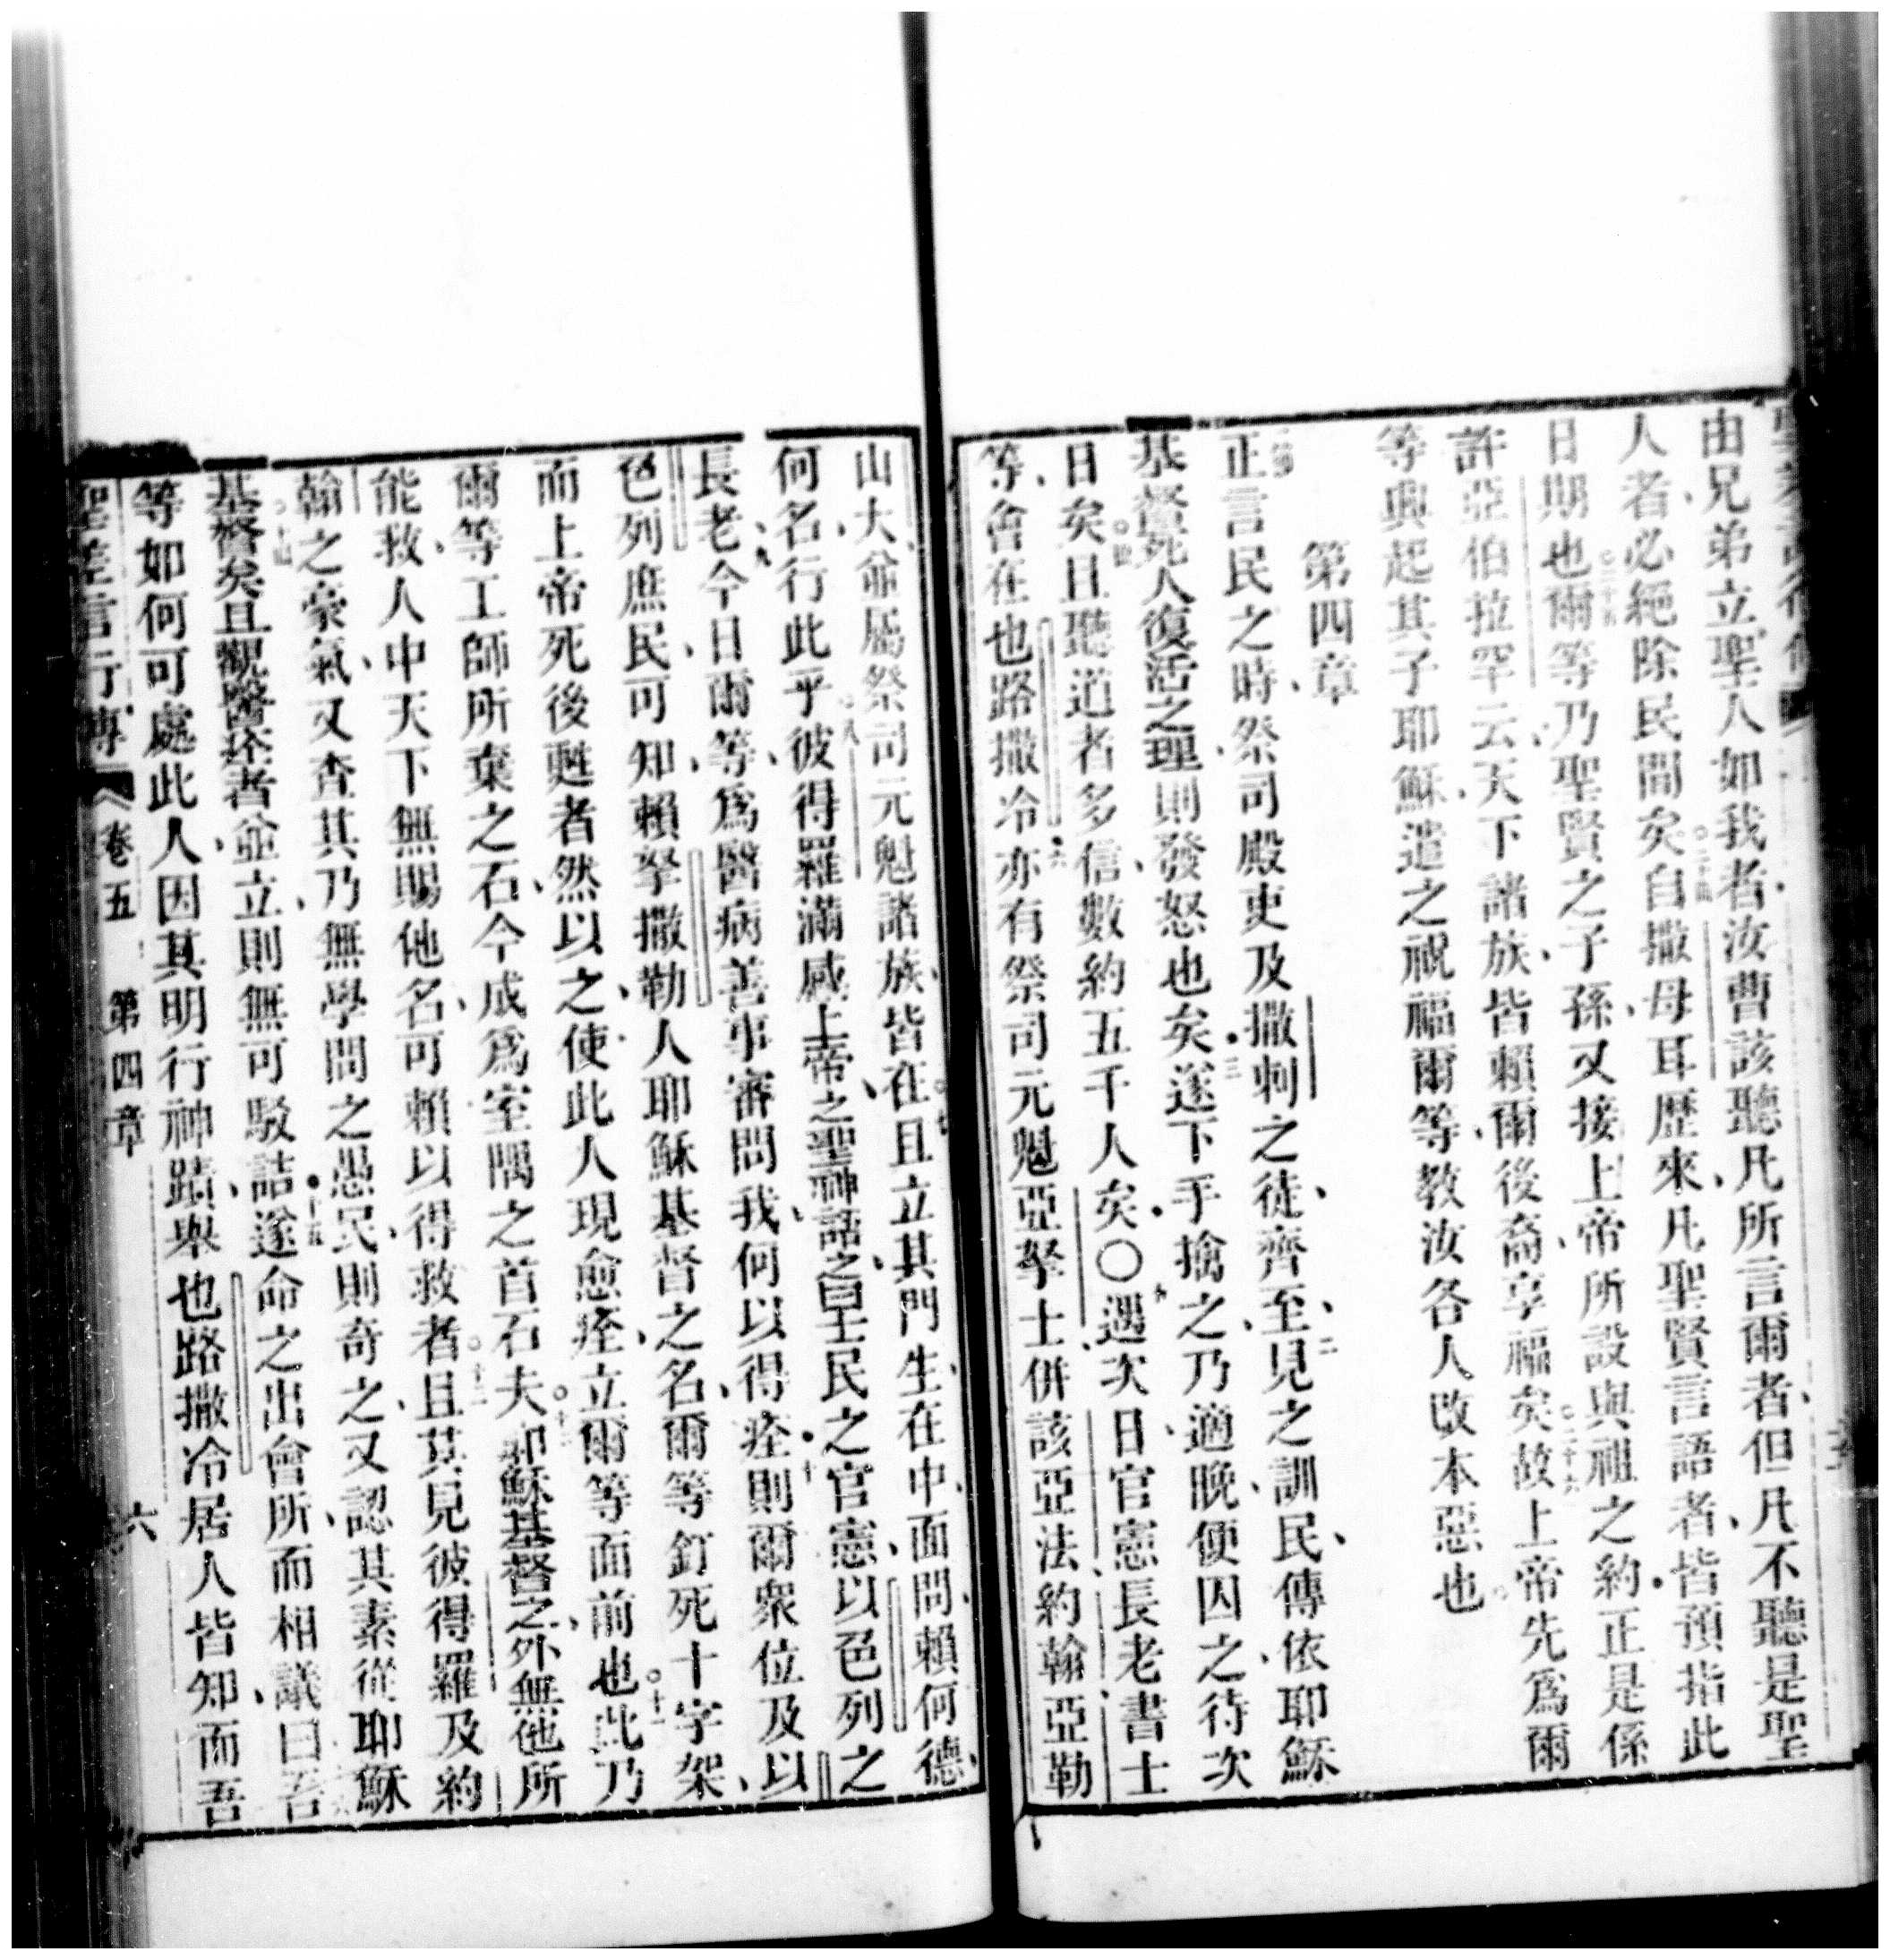 由兄弟立聖人如我者汝曹該聽凡所言爾者但凡不聽是聖
人者必絕除民間矣自撒母耳歷來凡聖賢言語者皆預指此
日期也爾等乃聖賢之子孫又接上帝所設與祖之約正是係
許亞伯拉罕云天下諸族皆賴爾後裔享福矣故上帝先爲爾
等興起其子耶穌遣之祝福爾等教汝各人改本惡也
第四章
正言民之時祭司殿吏及撒剌之徒齊至見之訓民傳依耶穌
基督死人復活之理則發怒也矣遂下手擒之乃適晚便囚之待次
日矣且聽道者多信數約五千人矣〇遇次日官憲長老書士
等會在也路撒冷亦有祭司元魁亞拏士併該亞法約翰亞勒
山大並屬祭司元魁諸族皆在且立其門生在中面問賴何德
何名行此乎彼得羅滿感上帝之聖神話之曰王民之官憲以色列之
長老今日爾等爲醫病善事審問我何以得痊則爾衆位及以
色列庶民可知賴拏撒勒人耶穌基督之名爾等釘死十字架
而上帝死後甦者然以之使此人現愈痊立爾等面前也此乃
爾等工師所棄之石今成爲室隅之首石夫耶穌基督之外無他所
能救人中天下無賜他名可賴以得救者且其見彼得羅及約
翰之豪氣又查其乃無學問之愚民則奇之又認其素從耶穌
基督矣且觀醫痊者並立則無可駁詰遂命之出會所而相議曰吾
等如何可處此人因其明行神蹟與也路撒冷居人皆知而吾
聖差言行傳 卷五 第四章 六